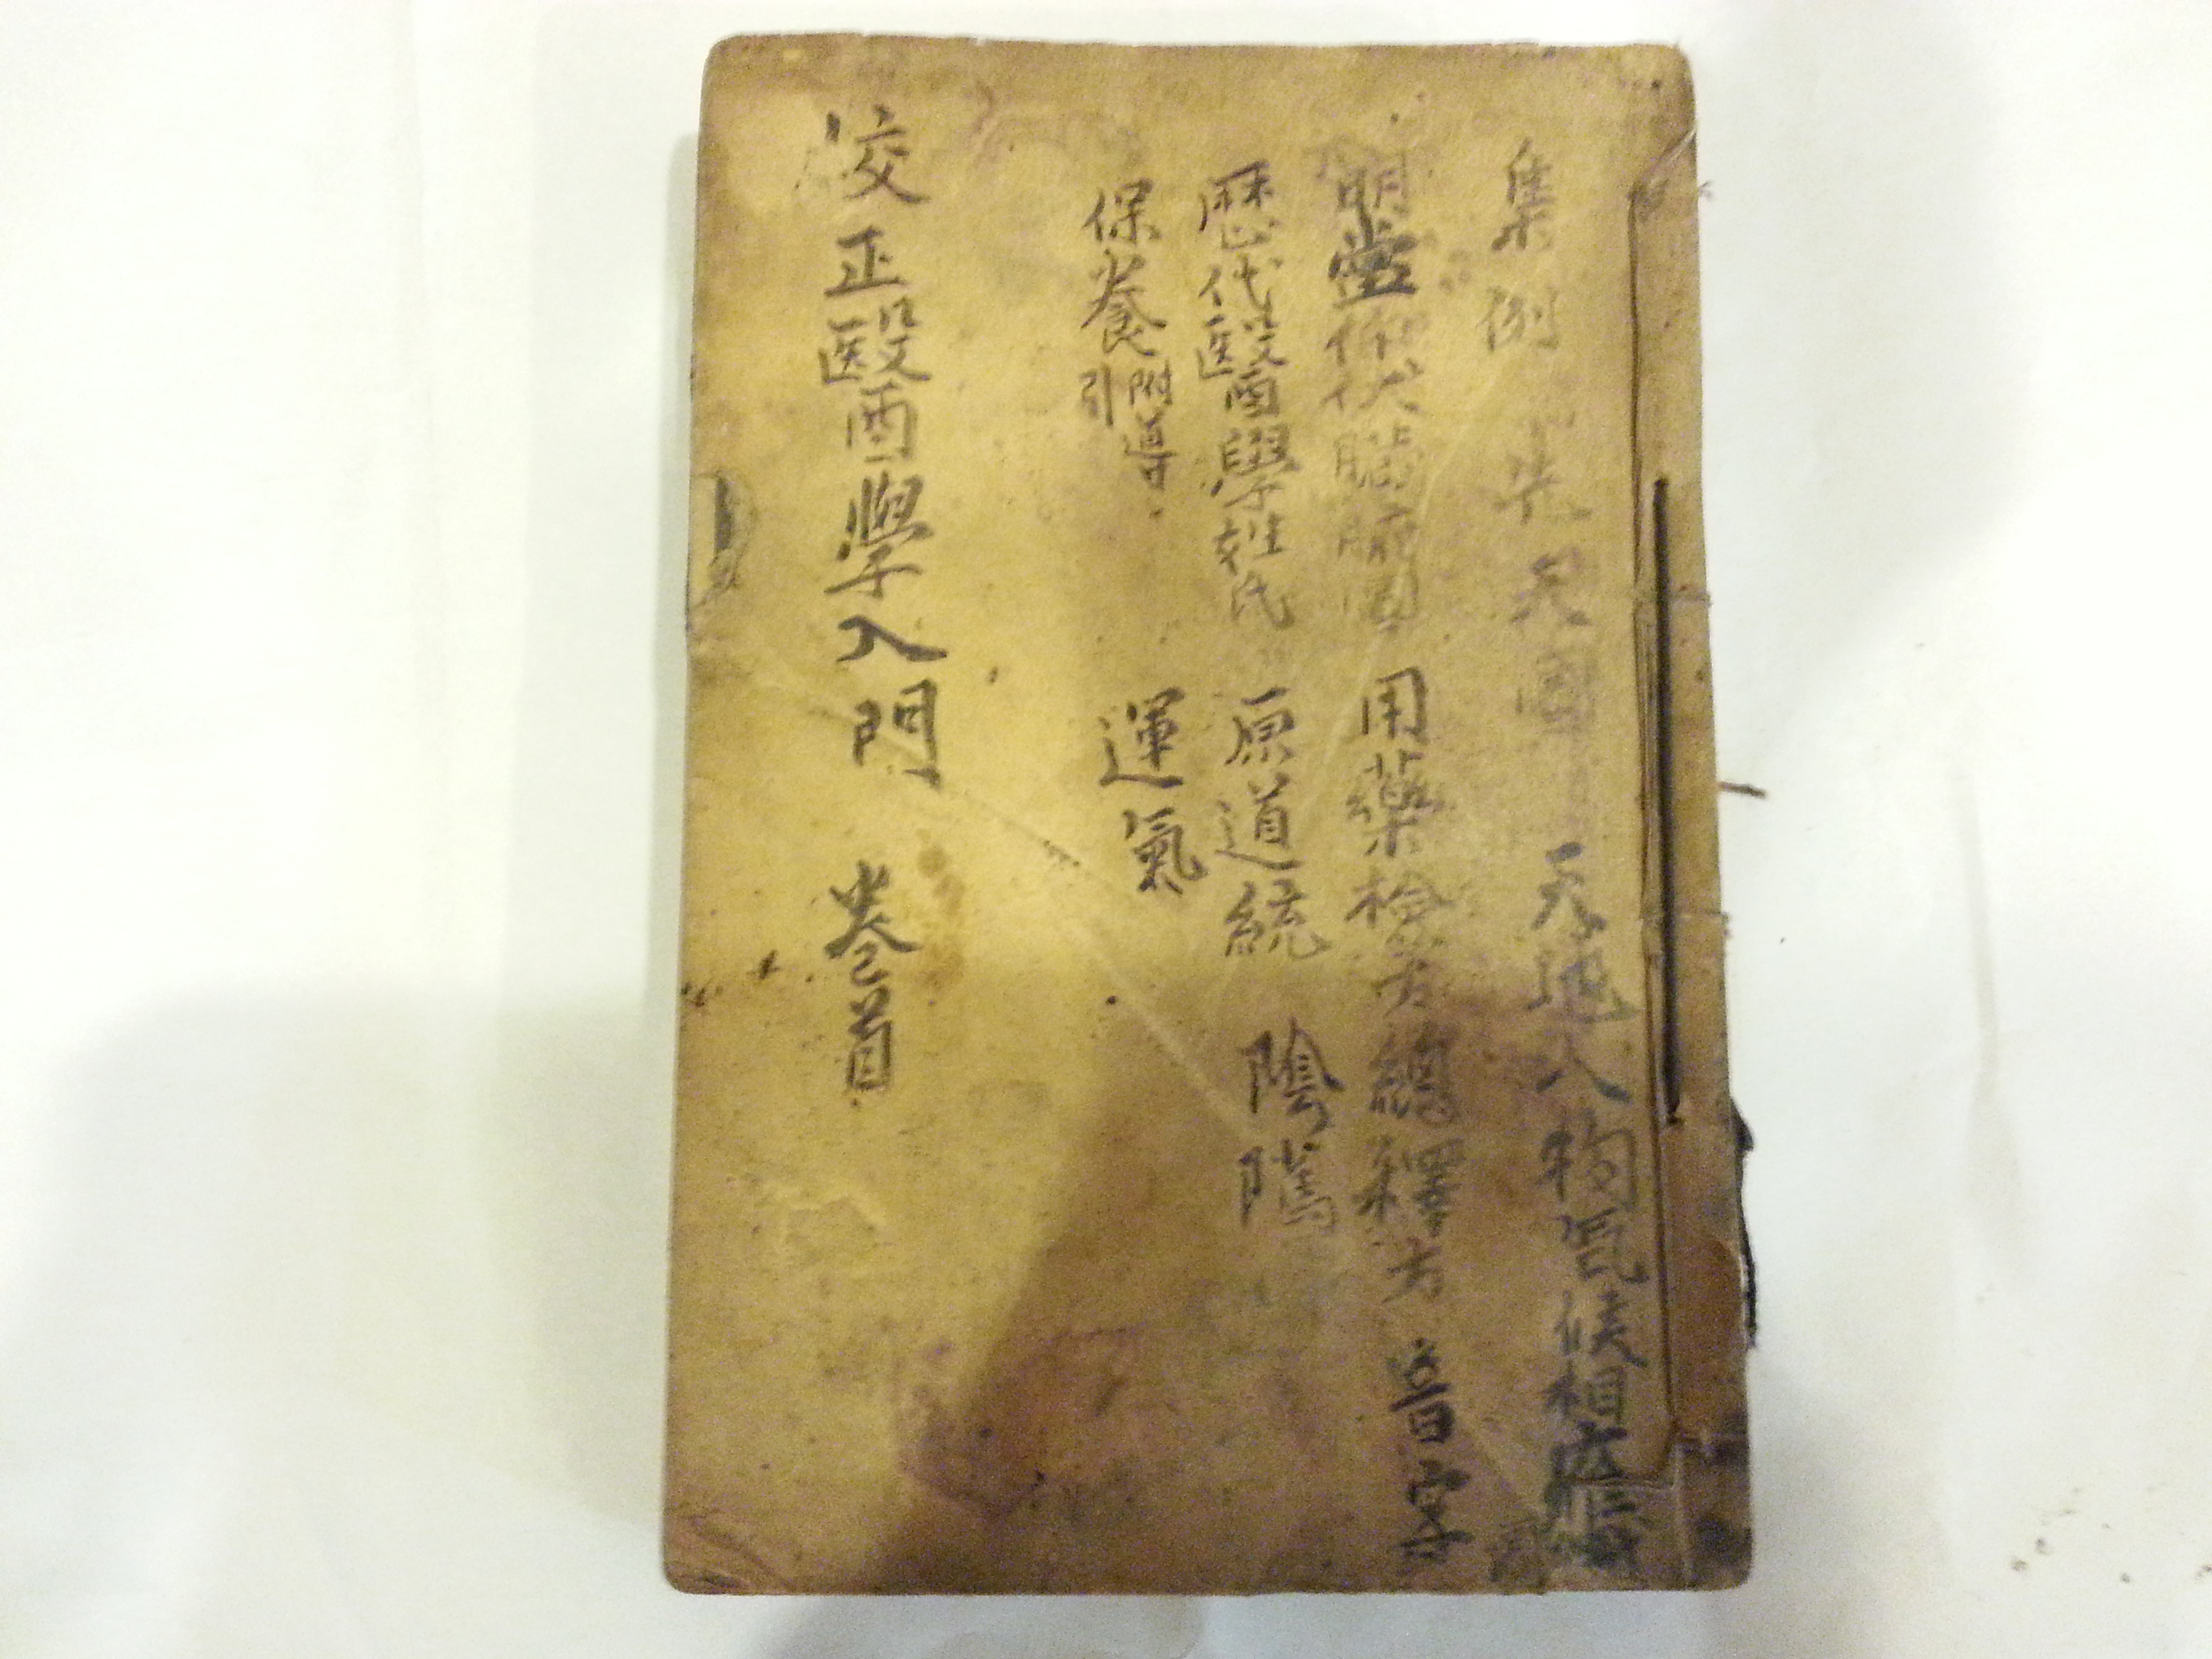 集例 先天圖 天地人物氣候相應
明堂仰伏臟腑圖 用藥檢方總釋方 音字
歷代醫學姓氏 原道統 陰隲
保養 附導引 運氣
校正醫學入門 卷首